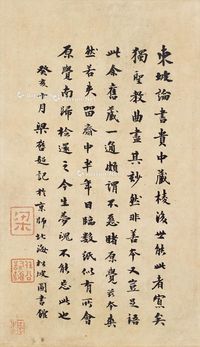 東坡論書貴中藏棱後世能此者寡矣
獨聖教曲盡其妙然非善本又豈足語
此余舊藏一通頗謂不惡睹原覺茲本爽
然若失留齋中半年日臨數紙似有所會
原覺南歸檢還之今生夢況不能忘此也
癸亥十月梁啓超記於京師北海松坡圖書館
梁